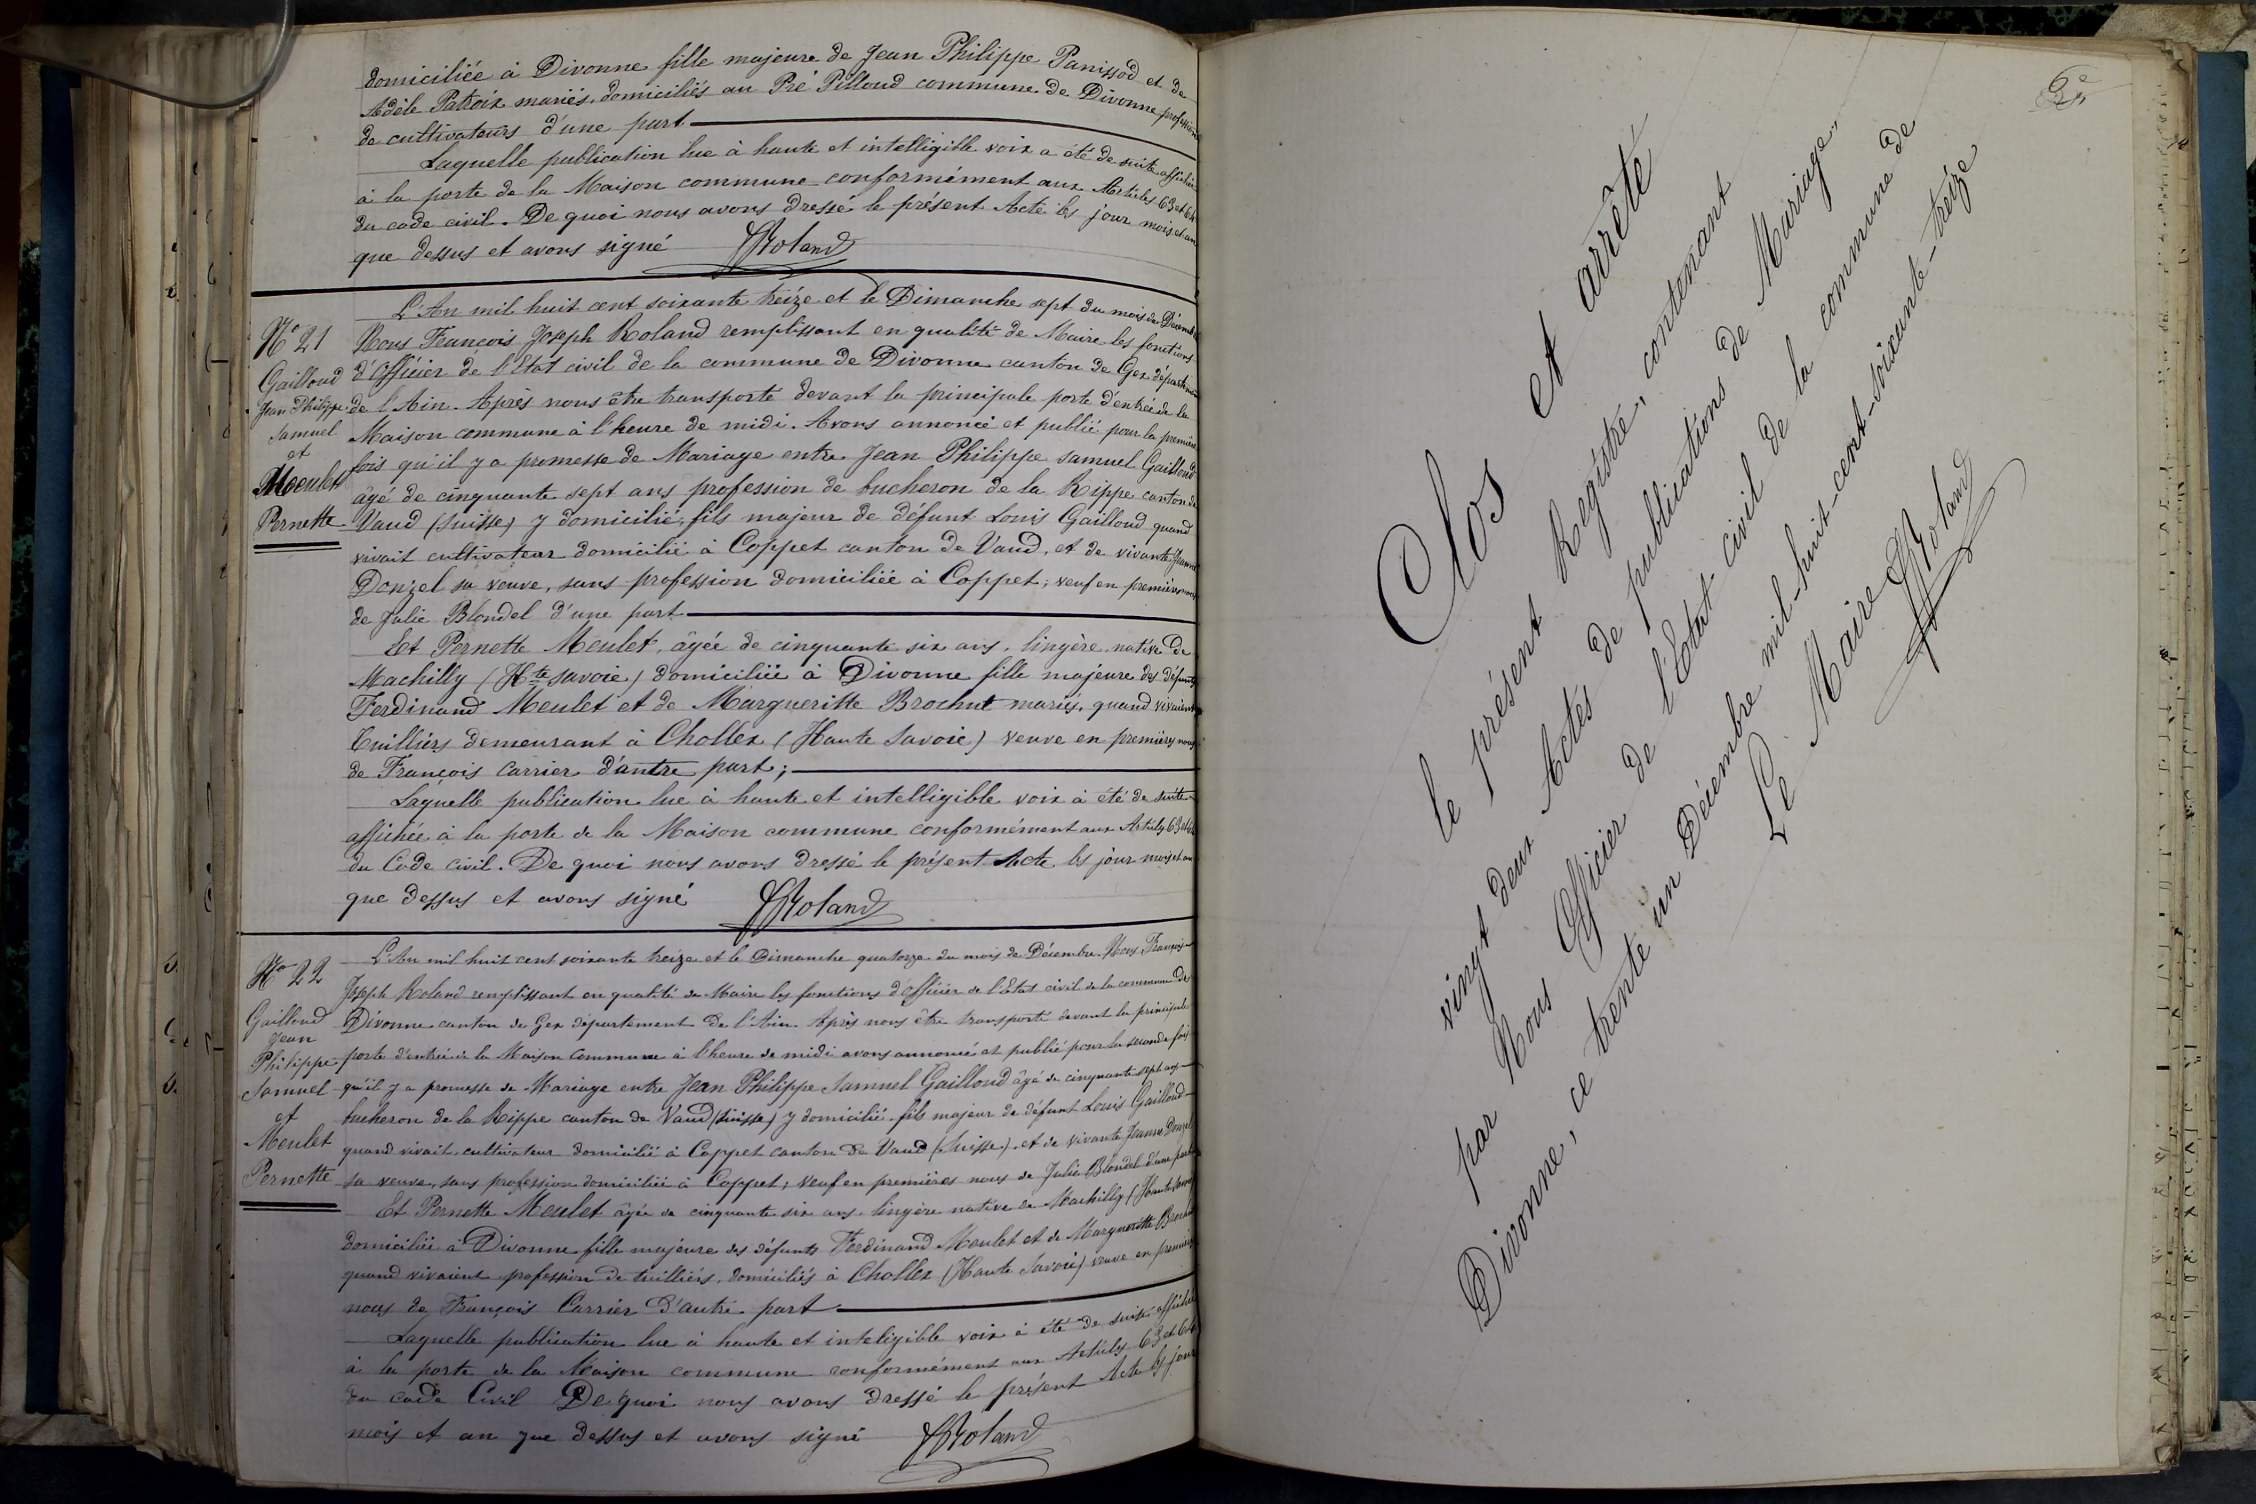 domiciliée à Divonne fille majeure de Jean Philippe Panissod et de
Adèle Patroix mariés, domiciliés au Pré Pelloud commune de Divonne profession
de cultivateurs d'une part
Laquelle publication lue à haute et intelligible voix a été de suite affichée
à la porte de la Maison commune conformément aux Articles 63 et 64
du code civil. De quoi nous avons dressé le présent Acte les jour mois et an
que dessus et avons signé FJRoland
N° 21
Gailloud
Jean Philippe
Samuel
et
Meulet
Pernette
L'An mil huit cent soixante treize et le Dimanche sept du mois de Décembre
Nous François Joseph Roland remplissant en qualité de Maire les fonctions
d'Officier de l'Etat civil de la commune de Divonne canton de Gex département
de l'Ain. Après nous être transporté devant la principale porte d'entrée de la
Maison commune à l'heure de midi. Avons annoncé et publié pour la première
fois qu'il y a promesse de Mariage entre Jean Philippe Samuel Gailloud
âgé de cinquante sept ans profession de bucheron de la Rippe canton de
Vaud (Suisse) y domicilié, fils majeur de défunt Louis Gailloud quand
vivait cultivateur domicilié à Coppet canton de Vaud, et de vivante Jeanne
Donzel sa veuve, sans profession domiciliée à Coppet; veuf en premières noces
de Julie Blondel d'une part
Et Pernette Meulet, âgée de cinquante six ans, lingère native de
Machilly (Hte Savoie) domiciliée à Divonne fille majeure des défunts
Ferdinand Meulet et de Margueritte Brochut mariés, quand vivaient
tuilliers demeurant à Chollex (Haute Savoie) veuve en premières noces
de François Carrier d'autre part;
Laquelle publication lue à haute et intelligible voix à été de suite
affichée à la porte de la Maison commune conformément aux Articles 63 et 64
du Code civil. De quoi nous avons dressé le présent Acte les jour mois et an
que dessus et avons signé FJRoland
N° 22
Gailloud
Jean
Philippe
Samuel
et
Meulet
Pernette
L'An mil huit cent soixante treize et le Dimanche quatorze du mois de Décembre Nous François
Joseph Roland remplissant en qualité de Maire les fonctions d'officier de l'Etat civil de la commune de
Divonne canton de Gex département de l'Ain Après nous être transporté devant la principale
porte d'entrée de la Maison commune à l'heure de midi avons annoncé et publié pour la seconde fois
qu'il y a promesse de Mariage entre Jean Philippe Samuel Gailloud âgé de cinquante sept ans
bucheron de la Rippe canton de Vaud (Suisse) y domicilié fils majeur de défunt Louis Gailloud
quand vivait cultivateur domicilié à Coppet canton de Vaud (Suisse). et de vivante Jeanne Donzel
sa veuve, sans profession domiciliée à Coppet; veuf en premières noces de Julie Blondel d'une part
Et Pernette Meulet âgée de cinquante six ans lingère native de Machilly (Haute Savoie)
domiciliée à Divonne fille majeure des défunts Ferdinand Meulet et de Margueritte Brochut
quand vivaient profession de tuilliers, domiciliés à Chollex (Haute Savoie) veuve en premières
noces de François Carrier d'autre part
Laquelle publication lue à haute et inteligible voix à été de suite affichée
à la porte de la Maison commune conformément aux Articles 63 et 64
du code Civil De quoi nous avons dressé le présent Acte les jour
mois et an que dessus et avons signé FJRoland
Clos et arrêté
le présent Registre, contenant
vingt deux Actes de publications de Mariage,
par Nous Officier de l'Etat civil de la commune de
Divonne, ce trente un Décembre mil-huit-cent-soixante-treize
Le Maire FJRoland